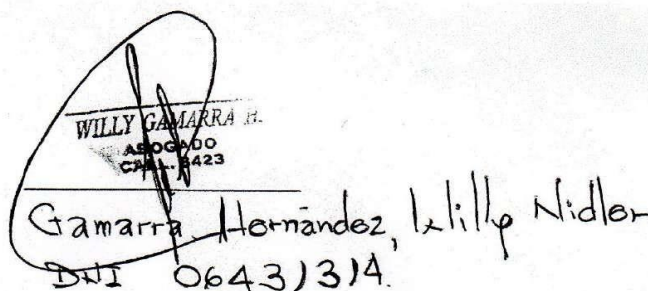 WILLY GAMARRA H.
ABOGADO
CAL. 8423
Gamarra Hernández, Willy Nidler
DNI 06431314.